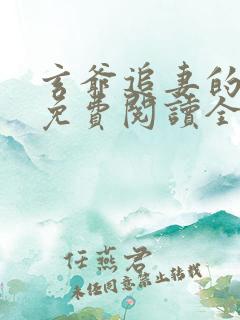 玄爺追妻的
免費閱讀全
任燕君
未經同意禁止轉載